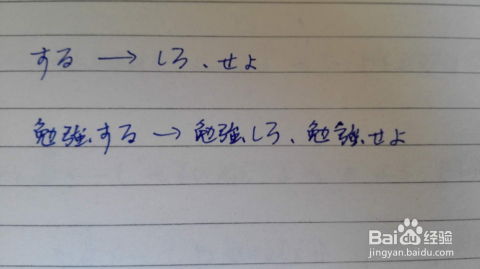 する → しろ、せよ
勉強する → 勉強しろ、勉強せよ
Baidu经验
jingyan.baidu.com